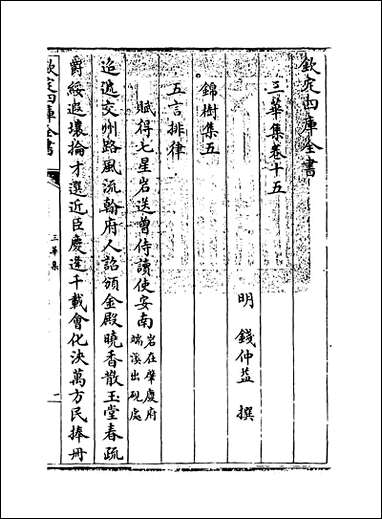 欽定四庫全書
三華集卷十五
明 錢仲益 撰
錦樹集五
五言排律
賦得七星岩送曾侍讀使安南岩在肇慶府
端溪出硯處
迢遞交州路風流翰府人詔頒金殿曉香散玉堂春疏
爵綏遐壤掄才選近臣慶逢千載會化決萬方民捧冊
欽定四庫全書
三華集
一